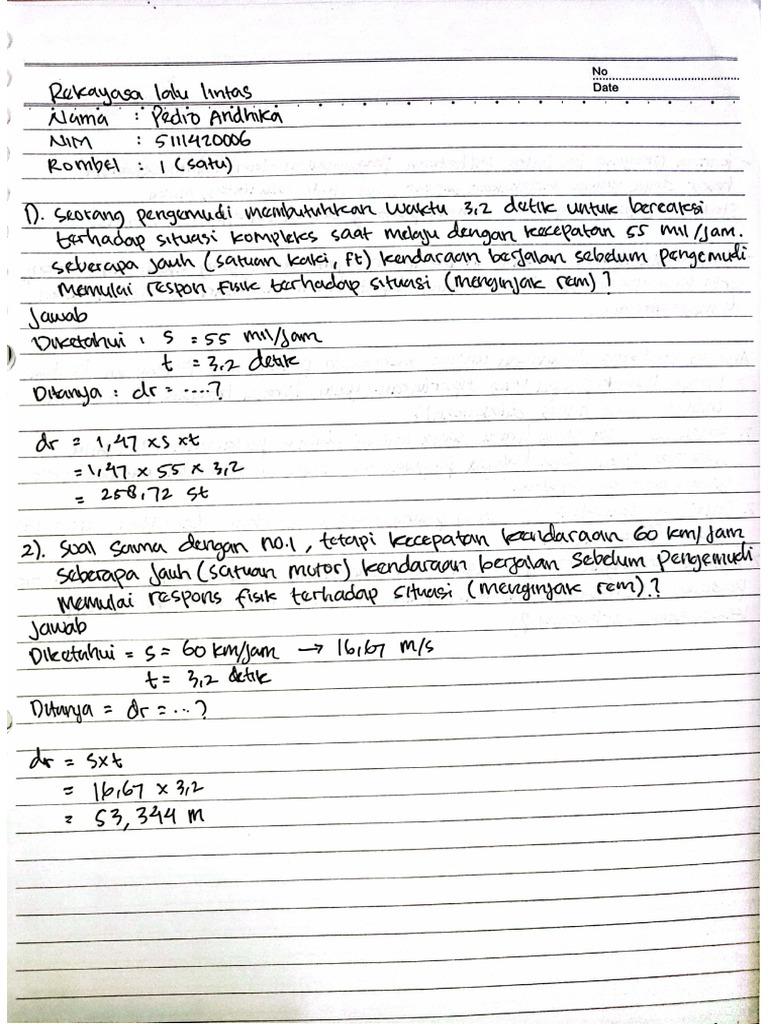 No
Date
Rekayasa lalu lintas
Nama : Pedro Andhika
NIM : 5111420006
Rombel : 1 (satu)
1). Seorang pengemudi membutuhkan waktu 3,2 detik untuk bereaksi
terhadap situasi kompleks saat melaju dengan kecepatan 55 mil/jam.
seberapa jauh (satuan kaki, ft) kendaraan berjalan sebelum pengemudi
memulai respon fisik terhadap situasi (menginjak rem)?
Jawab
Diketahui : s = 55 mil/jam
t = 3,2 detik
Ditanya : dr = ....?
dr = 1,47 x s x t
= 1,47 x 55 x 3,2
= 258,72 st
2). Soal sama dengan no.1, tetapi kecepatan kendaraan 60 km/jam
seberapa jauh (satuan motor) kendaraan berjalan sebelum pengemudi
memulai respons fisik terhadap situasi (menginjak rem)?
Jawab
Diketahui = s = 60 km/jam → 16,67 m/s
t = 3,2 detik
Ditanya = dr = ...?
dr = s x t
= 16,67 x 3,2
= 53,344 m